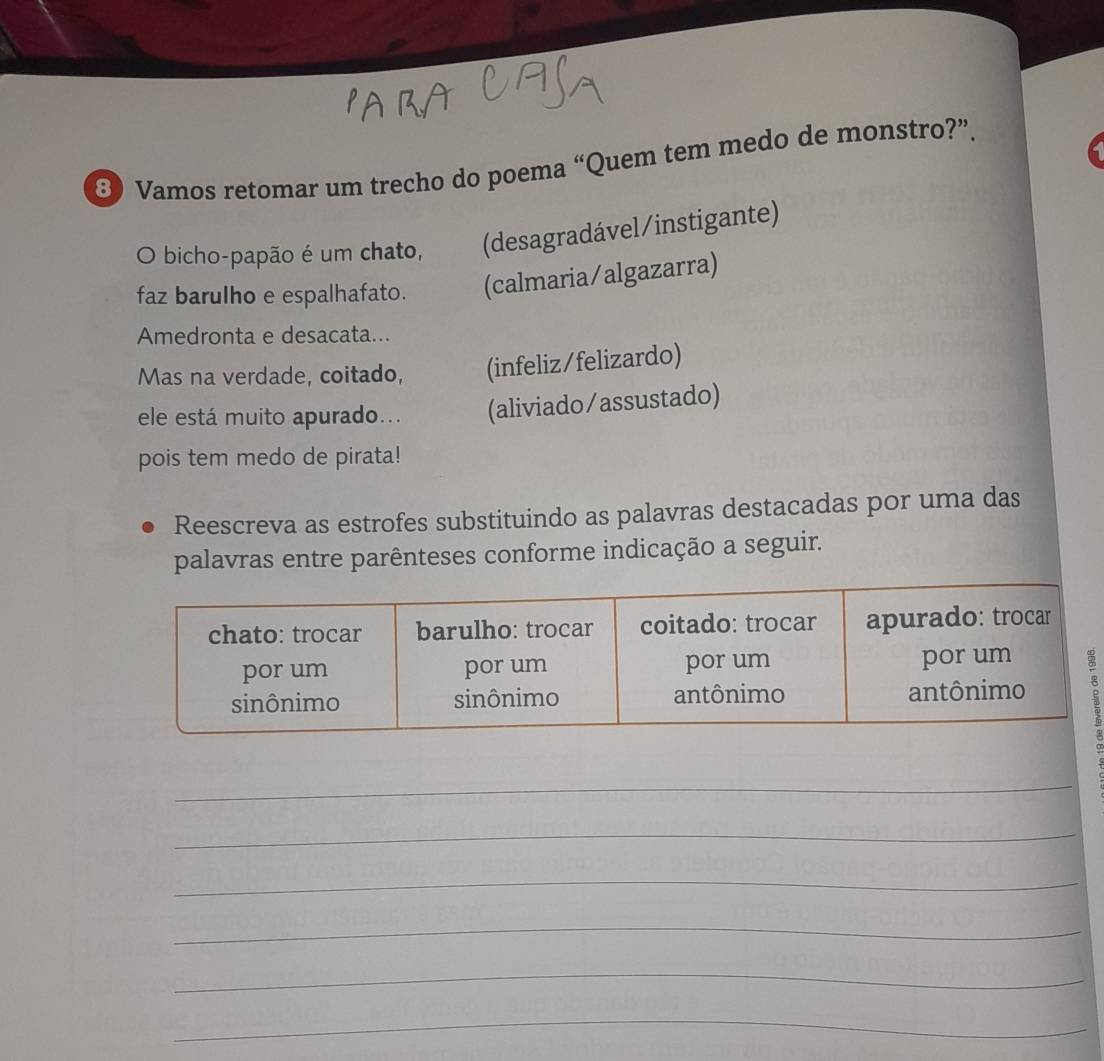 PARA CASA
8 Vamos retomar um trecho do poema “Quem tem medo de monstro?”.
1
O bicho-papão é um chato, (desagradável/instigante)
faz barulho e espalhafato. (calmaria/algazarra)
Amedronta e desacata...
Mas na verdade, coitado, (infeliz/felizardo)
ele está muito apurado... (aliviado/assustado)
pois tem medo de pirata!
• Reescreva as estrofes substituindo as palavras destacadas por uma das
palavras entre parênteses conforme indicação a seguir.
chato: trocar
por um
sinônimo
barulho: trocar
por um
sinônimo
coitado: trocar
por um
antônimo
apurado: trocar
por um
antônimo
de 19 de fevereiro de 1998.